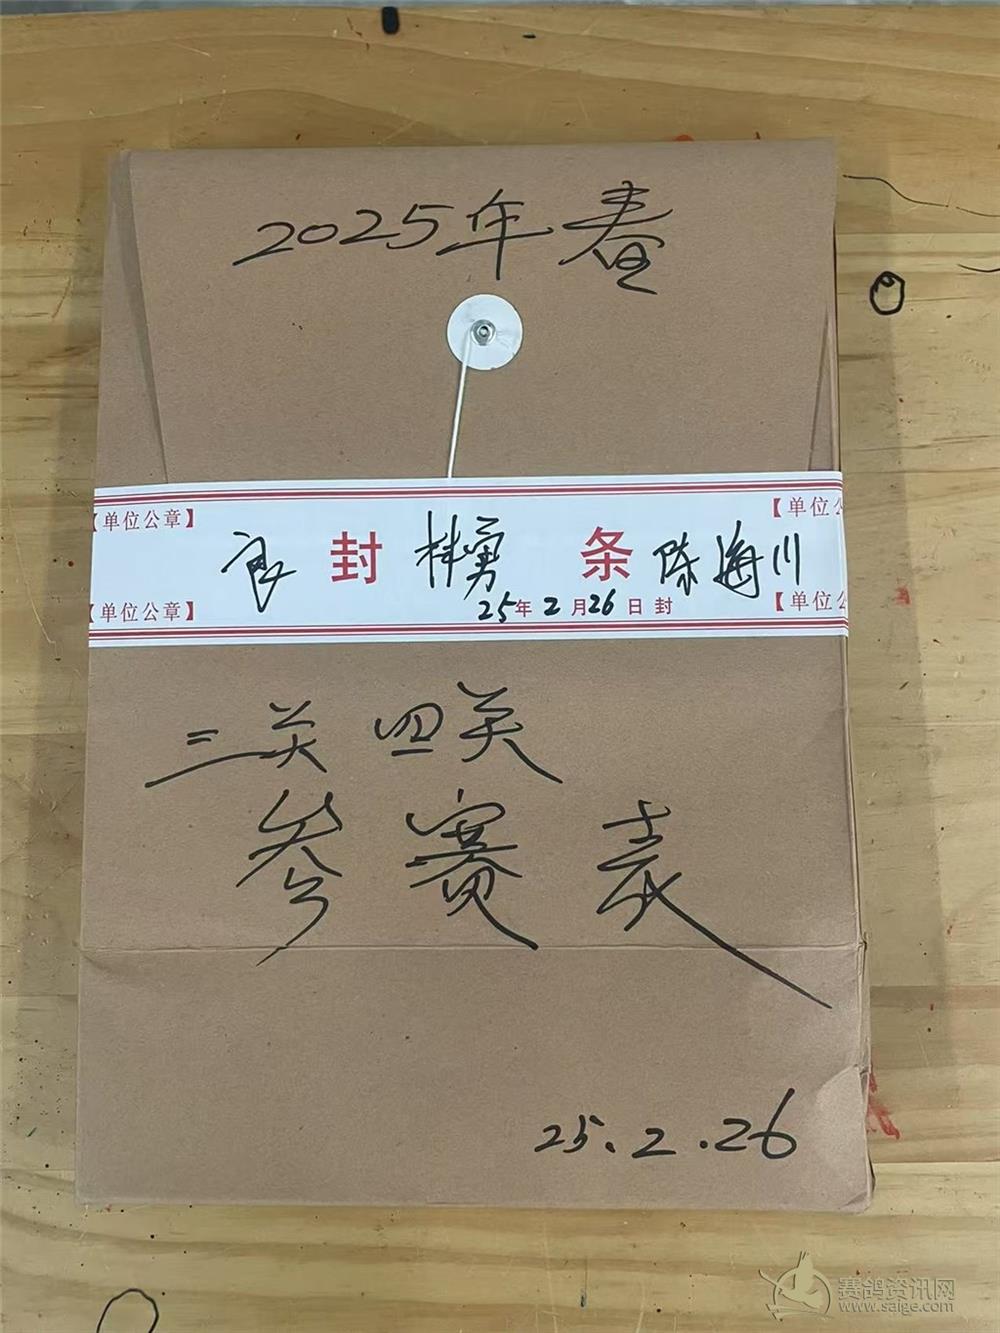 2025年春
【单位公章】
【单位公
良 封 林勇 条 陈海川
【单位公章】
25年2月26日封
【单位公
三关 四关
参赛表
25.2.26
赛鸽资讯网
www.saige.com